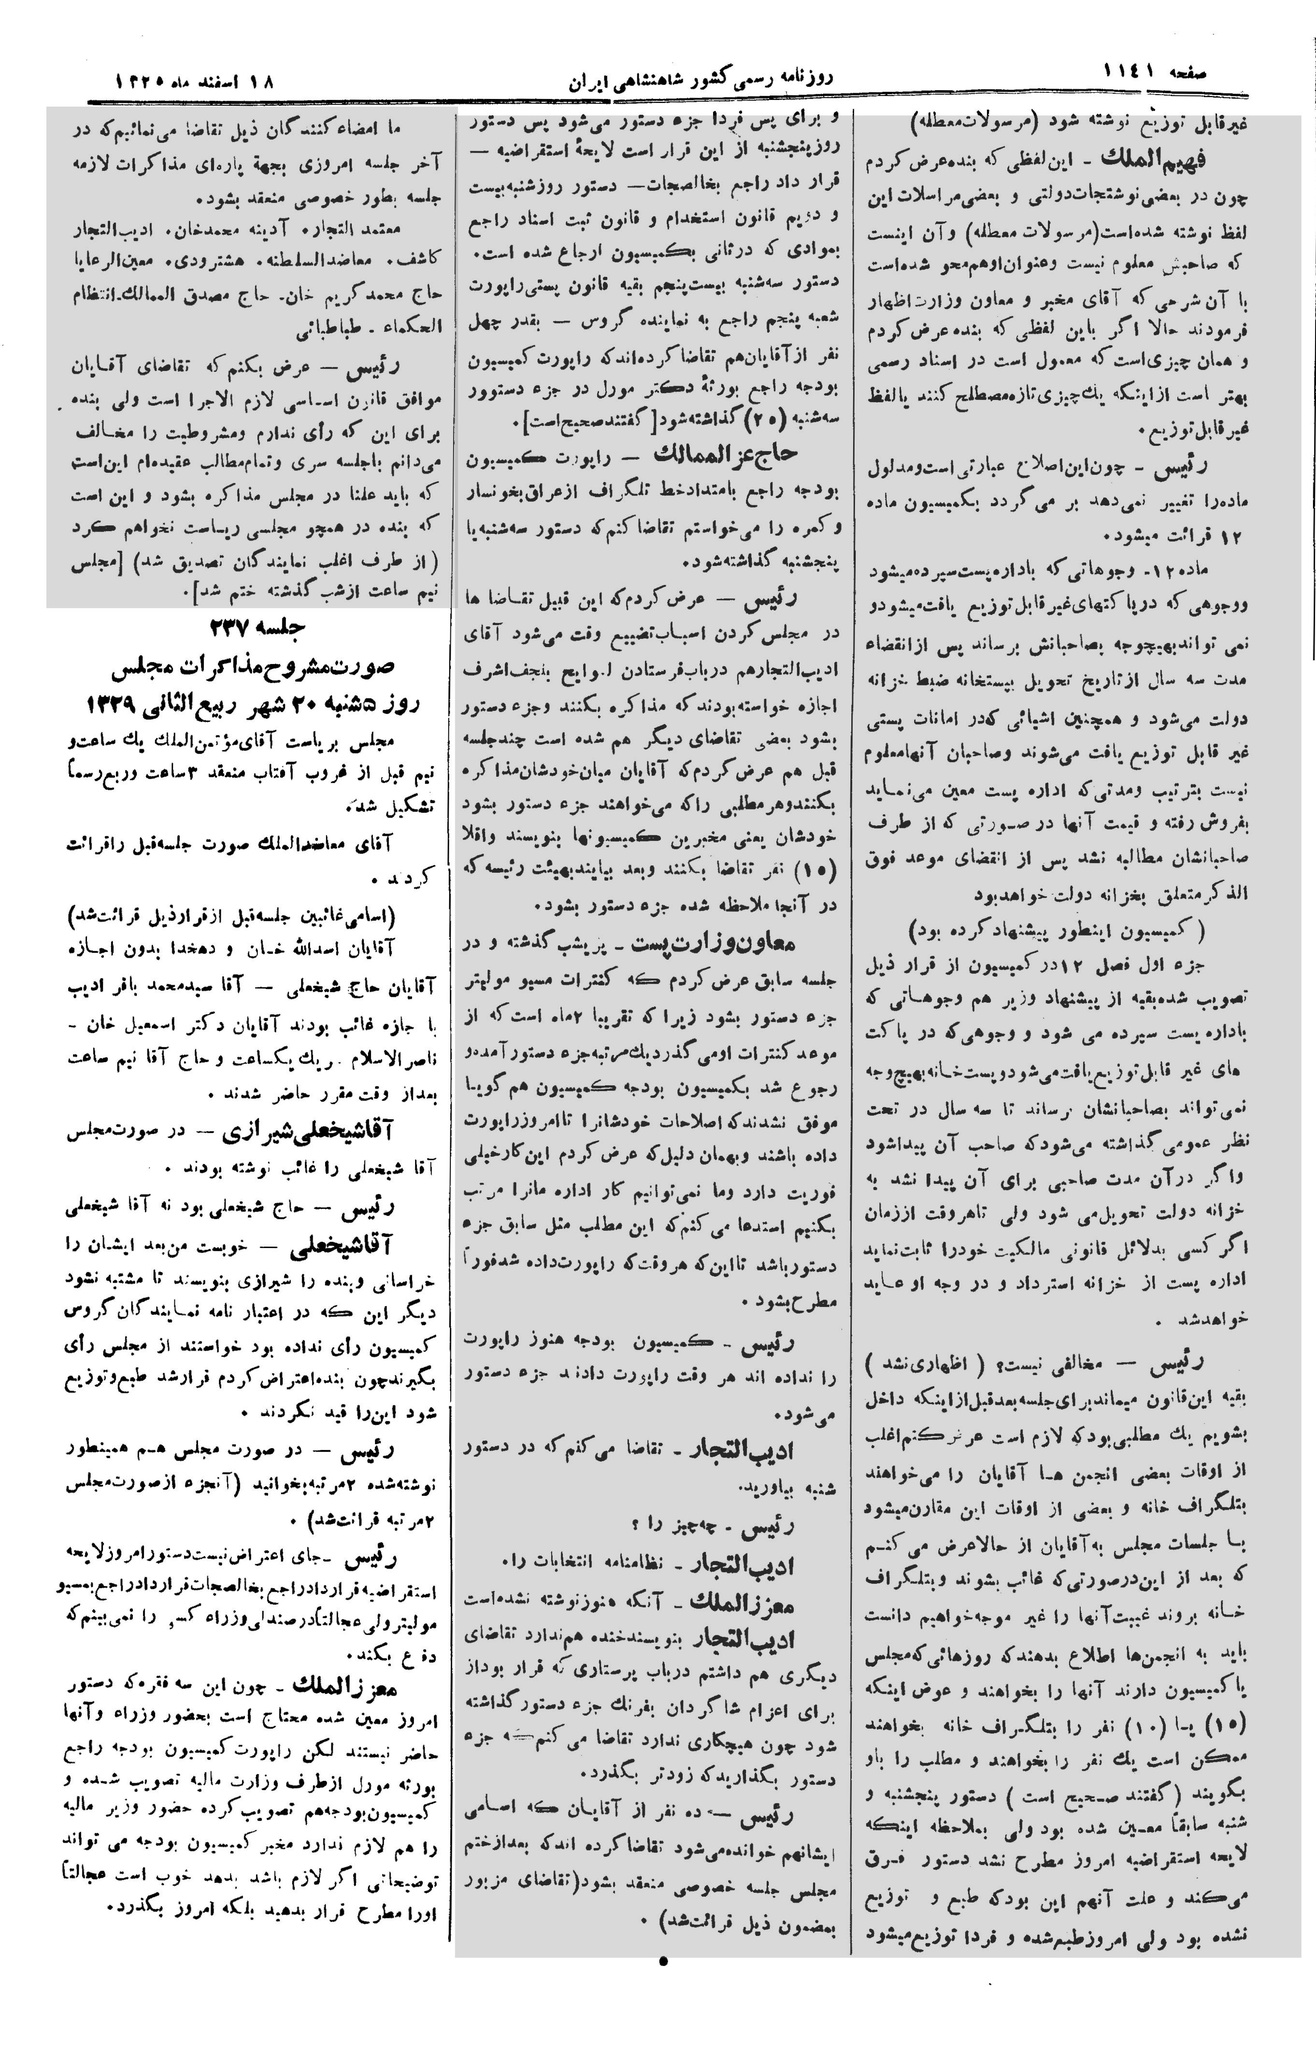 صفحه ۱۱٤۱
روزنامه رسمی کشور شاهنشاهی ایران
۱۸ اسفند ماه ۱۳۲۵
غیرقابل توزیع نوشته شود (مرسولات معطله)
فهیم الملک ـ این لفظی که بنده عرض کردم
چون در بعضی نوشتجات دولتی و بعضی مراسلات این
لفظ نوشته شده است (مرسولات معطله) و آن اینست
که صاحبش معلوم نیست و عنوان او هم محو شده است
با آن شرحی که آقای مخبر و معاون وزارت اظهار
فرمودند حالا اگر باین لفظی که بنده عرض کردم
و همان چیزی است که معمول است در اسناد رسمی
بهتر است از اینکه یك چیزی تازه مصطلح کنند یا لفظ
غیرقابل توزیع.
رئیس ـ چون این اصلاح عبارتی است و مدلول
ماده را تغییر نمی‌دهد بر می گردد بکمیسیون ماده
۱۲ قرائت میشود.
ماده ۱۲ـ وجوهاتی که باداره پست سپرده میشود
و وجوهی که در پاکتهای غیرقابل توزیع یافت میشود و
نمی تواند بهیچوجه بصاحبانش برساند پس از انقضاء
مدت سه سال از تاریخ تحویل بپستخانه ضبط خزانه
دولت می‌شود و همچنین اشیائی که در امانات پستی
غیر قابل توزیع یافت می‌شوند و صاحبان آنها معلوم
نیست بترتیب و مدتی که اداره پست معین می‌نماید
بفروش رفته و قیمت آنها در صورتی که از طرف
صاحبانشان مطالبه نشد پس از انقضای موعد فوق
الذکر متعلق بخزانه دولت خواهد بود
(کمیسیون اینطور پیشنهاد کرده بود)
جزء اول فصل ۱۲ در کمیسیون از قرار ذیل
تصویب شده بقیه از پیشنهاد وزیر هم وجوهاتی که
باداره پست سپرده می شود و وجوهی که در پاکت
های غیر قابل توزیع یافت می‌شود و پست خانه بهیچ وجه
نمی‌تواند بصاحبانشان برساند تا سه سال در تحت
نظر عمومی گذاشته می‌شود که صاحب آن پیدا شود
و اگر در آن مدت صاحبی برای آن پیدا نشد به
خزانه دولت تحویل می شود ولی تا هر وقت از زمان
اگر کسی بدلائل قانونی مالکیت خود را ثابت نماید
اداره پست از خزانه استرداد و در وجه او عاید
خواهد شد .
رئیس — مخالفی نیست؟ ( اظهاری نشد )
بقیه این قانون میماند برای جلسه بعد قبل از اینکه داخل
بشویم یك مطلبی بود که لازم است عرض کنم اغلب
از اوقات بعضی انجمن ها آقایان را می‌خواهند
بتلگراف خانه و بعضی از اوقات این مقارن میشود
با جلسات مجلس به آقایان از حالا عرض می کنم
که بعد از این در صورتی که غائب بشوند و بتلگراف
خانه بروند غیبت آنها را غیر موجه خواهیم دانست
باید به انجمن‌ها اطلاع بدهند که روزهائی که مجلس
یا کمیسیون دارند آنها را بخواهند و عوض اینکه
(۱۵) یا (۱۰) نفر را بتلگراف خانه بخواهند
ممکن است یك نفر را بخواهند و مطلب را باو
بگویند ( گفتند صحیح است ) دستور پنجشنبه و
شنبه سابقاً معین شده بود ولی بملاحظه اینکه
لایحه استقراضیه امروز مطرح نشد دستور فرق
می‌کند و علت آنهم این بود که طبع و توزیع
نشده بود ولی امروز طبع شده و فردا توزیع میشود
و برای پس فردا جزء دستور می‌شود پس دستور
روز پنجشنبه از این قرار است لایحهٔ استقراضیه —
قرار داد راجع بخالصجات — دستور روز شنبه بیست
و دویم قانون استخدام و قانون ثبت اسناد راجع
بموادی که در ثانی بکمیسیون ارجاع شده است.
دستور سه شنبه بیست پنجم بقیه قانون پستی راپورت
شعبه پنجم راجع به نماینده گروس — بقدر چهل
نفر از آقایان هم تقاضا کرده‌اند که راپورت کمیسیون
بودجه راجع بورثهٔ دکتر مورل در جزء دستوور
سه شنبه (۲۵) گذاشته شود [ گفتند صحیح است ].
حاج عز الممالك — راپورت کمیسیون
بودجه راجع بامتداد خط تلگراف از عراق بخونسار
و کمره را می‌خواستم تقاضا کنم که دستور سه شنبه یا
پنجشنبه گذاشته شود.
رئیس — عرض کردم که این قبیل تقاضا ها
در مجلس کردن اسباب تضییع وقت می‌شود آقای
ادیب التجار هم در باب فرستادن لوایح بنجف اشرف
اجازه خواسته بودند که مذاکره بکنند و جزء دستور
بشود بعضی تقاضای دیگر هم شده است چند جلسه
قبل هم عرض کردم که آقایان میان خودشان مذاکره
بکنند و هر مطلبی را که می‌خواهند جزء دستور بشود
خودشان یعنی مخبرین کمیسیونها بنویسند و اقلا
(۱۵) نفر تقاضا بکنند و بعد بیایند بهیئت رئیسه که
در آنجا ملاحظه شده جزء دستور بشود.
معاون وزارت پست ـ پریشب گذشته و در
جلسه سابق عرض کردم که کنترات مسیو مولیتر
جزء دستور بشود زیرا که تقریبا ۲ ماه است که از
موعد کنترات او می گذرد یك مرتبه جزء دستور آمده و
رجوع شد بکمیسیون بودجه کمیسیون هم گویا
موفق نشدند که اصلاحات خودشان را تا امروز راپورت
داده باشند و بهمان دلیل که عرض کردم این کار خیلی
فوریت دارد و ما نمی‌توانیم کار اداره مانرا مرتب
بکنیم استدعا می کنم که این مطلب مثل سابق جزء
دستور باشد تا این که هر وقت که راپورت داده شد فوراً
مطرح بشود .
رئیس ـ کمیسیون بودجه هنوز راپورت
را نداده اند هر وقت راپورت دادند جزء دستور
می‌شود.
ادیب التجار ـ تقاضا می کنم که در دستور
شنبه بیاورید.
رئیس ـ چه چیز را ؟
ادیب التجار ـ نظامنامه انتخابات را.
معزز الملك ـ آنکه هنوز نوشته نشده است
ادیب التجار بنویسند خنده هم ندارد تقاضای
دیگری هم داشتم در باب پرستاری که قرار بود از
برای اعزام شاگردان بفرنك جزء دستور گذاشته
شود چون هیچکاری ندارد تقاضا می کنم که جزء
دستور بگذارید که زودتر بگذرد.
رئیس — ده نفر از آقایان که اسامی
ایشانهم خوانده می‌شود تقاضا کرده اند که بعد از ختم
مجلس جلسه خصوصی منعقد بشود (تقاضای مزبور
بمضمون ذیل قرائت شد) .
ما امضاء کنندگان ذیل تقاضا می‌نمائیم که در
آخر جلسه امروزی بجهة پاره‌ای مذاکرات لازمه
جلسه بطور خصوصی منعقد بشود.
معتمد التجار. آدینه محمد خان. ادیب التجار
کاشف. معاضد السلطنه. هشترودی. معین الرعایا
حاج محمد کریم خان. حاج مصدق الممالك ـ انتظام
الحکماء ـ طباطبائی
رئیس — عرض بکنم که تقاضای آقایان
موافق قانون اساسی لازم الاجرا است ولی بنده
برای این که رأی ندارم و مشروطیت را مخالف
می‌دانم با جلسه سری و تمام مطالب عقیده‌ام این است
که باید علنا در مجلس مذاکره بشود و این است
که بنده در همچو مجلسی ریاست نخواهم کرد
( از طرف اغلب نمایندگان تصدیق شد) [مجلس
نیم ساعت از شب گذشته ختم شد].
جلسه ۲۳۷
صورت مشروح مذاکرات مجلس
روز ۵ شنبه ۲۰ شهر ربیع الثانی ۱۳۲۹
مجلس بریاست آقای مؤتمن الملك یك ساعت و
نیم قبل از غروب آفتاب منعقد ۳ ساعت و ربع رسماً
تشکیل شد.
آقای معاضد الملك صورت جلسه قبل را قرائت
کردند .
(اسامی غائبین جلسه قبل از قرار ذیل قرائت شد)
آقایان اسدالله خان و دهخدا بدون اجازه
آقایان حاج شیخعلی — آقا سید محمد باقر ادیب
با جازه غائب بودند آقایان دکتر اسمعیل خان -
ناصر الاسلام یك یکساعت و حاج آقا نیم ساعت
بعد از وقت مقرر حاضر شدند .
آقا شیخعلی شیرازی — در صورت مجلس
آقا شیخعلی را غائب نوشته بودند .
رئیس — حاج شیخعلی بود نه آقا شیخعلی
آقا شیخعلی — خوبست من بعد ایشان را
خراسانی و بنده را شیرازی بنویسند تا مشتبه نشود
دیگر این که در اعتبار نامه نمایندگان گروس
کمیسیون رأی نداده بود خواستند از مجلس رأی
بگیرند چون بنده اعتراض کردم قرار شد طبع و توزیع
شود این را قید نکردند .
رئیس — در صورت مجلس هم همینطور
نوشته شده ۲ مرتبه بخوانید (آنجزء از صورت مجلس
۲ مرتبه قرائت شد) .
رئیس ـ جای اعتراض نیست دستور امروز لایحه
استقراضیه قرارداد راجع بخالصجات قرارداد راجع بمسیو
مولیتر ولی عجالتاً در صندلی وزراء کسی را نمی‌بینم که
دفاع بکند.
معزز الملك ـ چون این سه فقره که دستور
امروز معین شده محتاج است بحضور وزراء و آنها
حاضر نیستند لکن راپورت کمیسیون بودجه راجع
بورثه مورل از طرف وزارت مالیه تصویب شده و
کمیسیون بودجه هم تصویب کرده حضور وزیر مالیه
را هم لازم ندارد مخبر کمیسیون بودجه می تواند
توضیحاتی اگر لازم باشد بدهد خوب است عجالتاً
او را مطرح قرار بدهید بلکه امروز بگذرد.